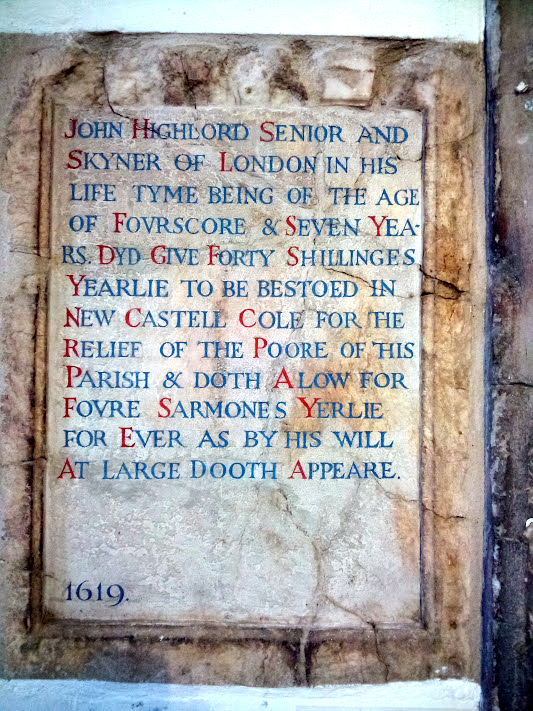 JOHN HIGHLORD SENIOR AND
SKYNER OF LONDON IN HIS
LIFE TYME BEING OF THE AGE
OF FOVRSCORE & SEVEN YEA-
RS. DYD GIVE FORTY SHILLINGES
YEARLIE TO BE BESTOED IN
NEW CASTELL COLE FOR THE
RELIEF OF THE POORE OF THIS
PARISH & DOTH ALOW FOR
FOVRE SARMONES YERLIE
FOR EVER AS BY HIS WILL
AT LARGE DOOTH APPEARE.
1619.